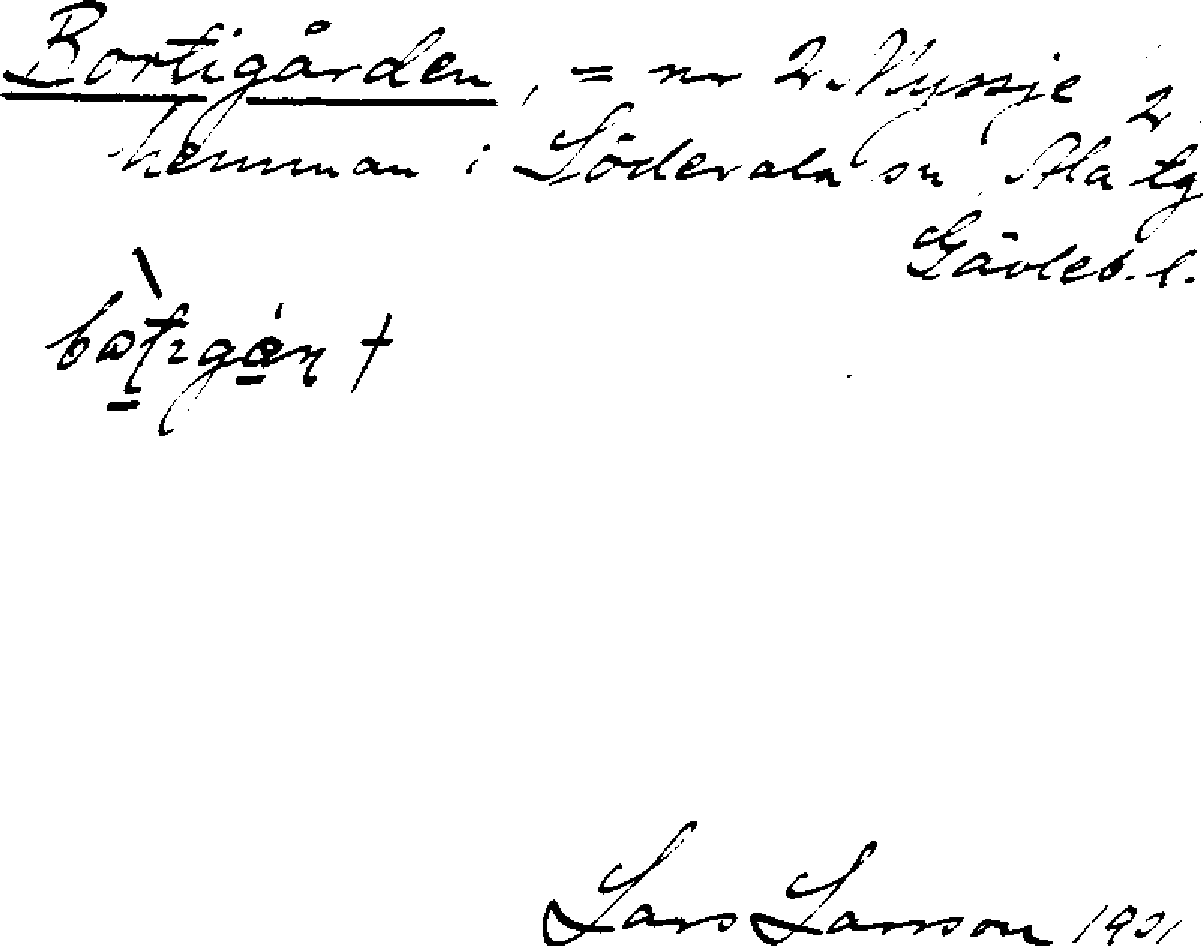 Bortigården, = nr 2 Nyssje 2
hemman i Söderala sn Ala tg
Gävleb. l.
Lars Larsson